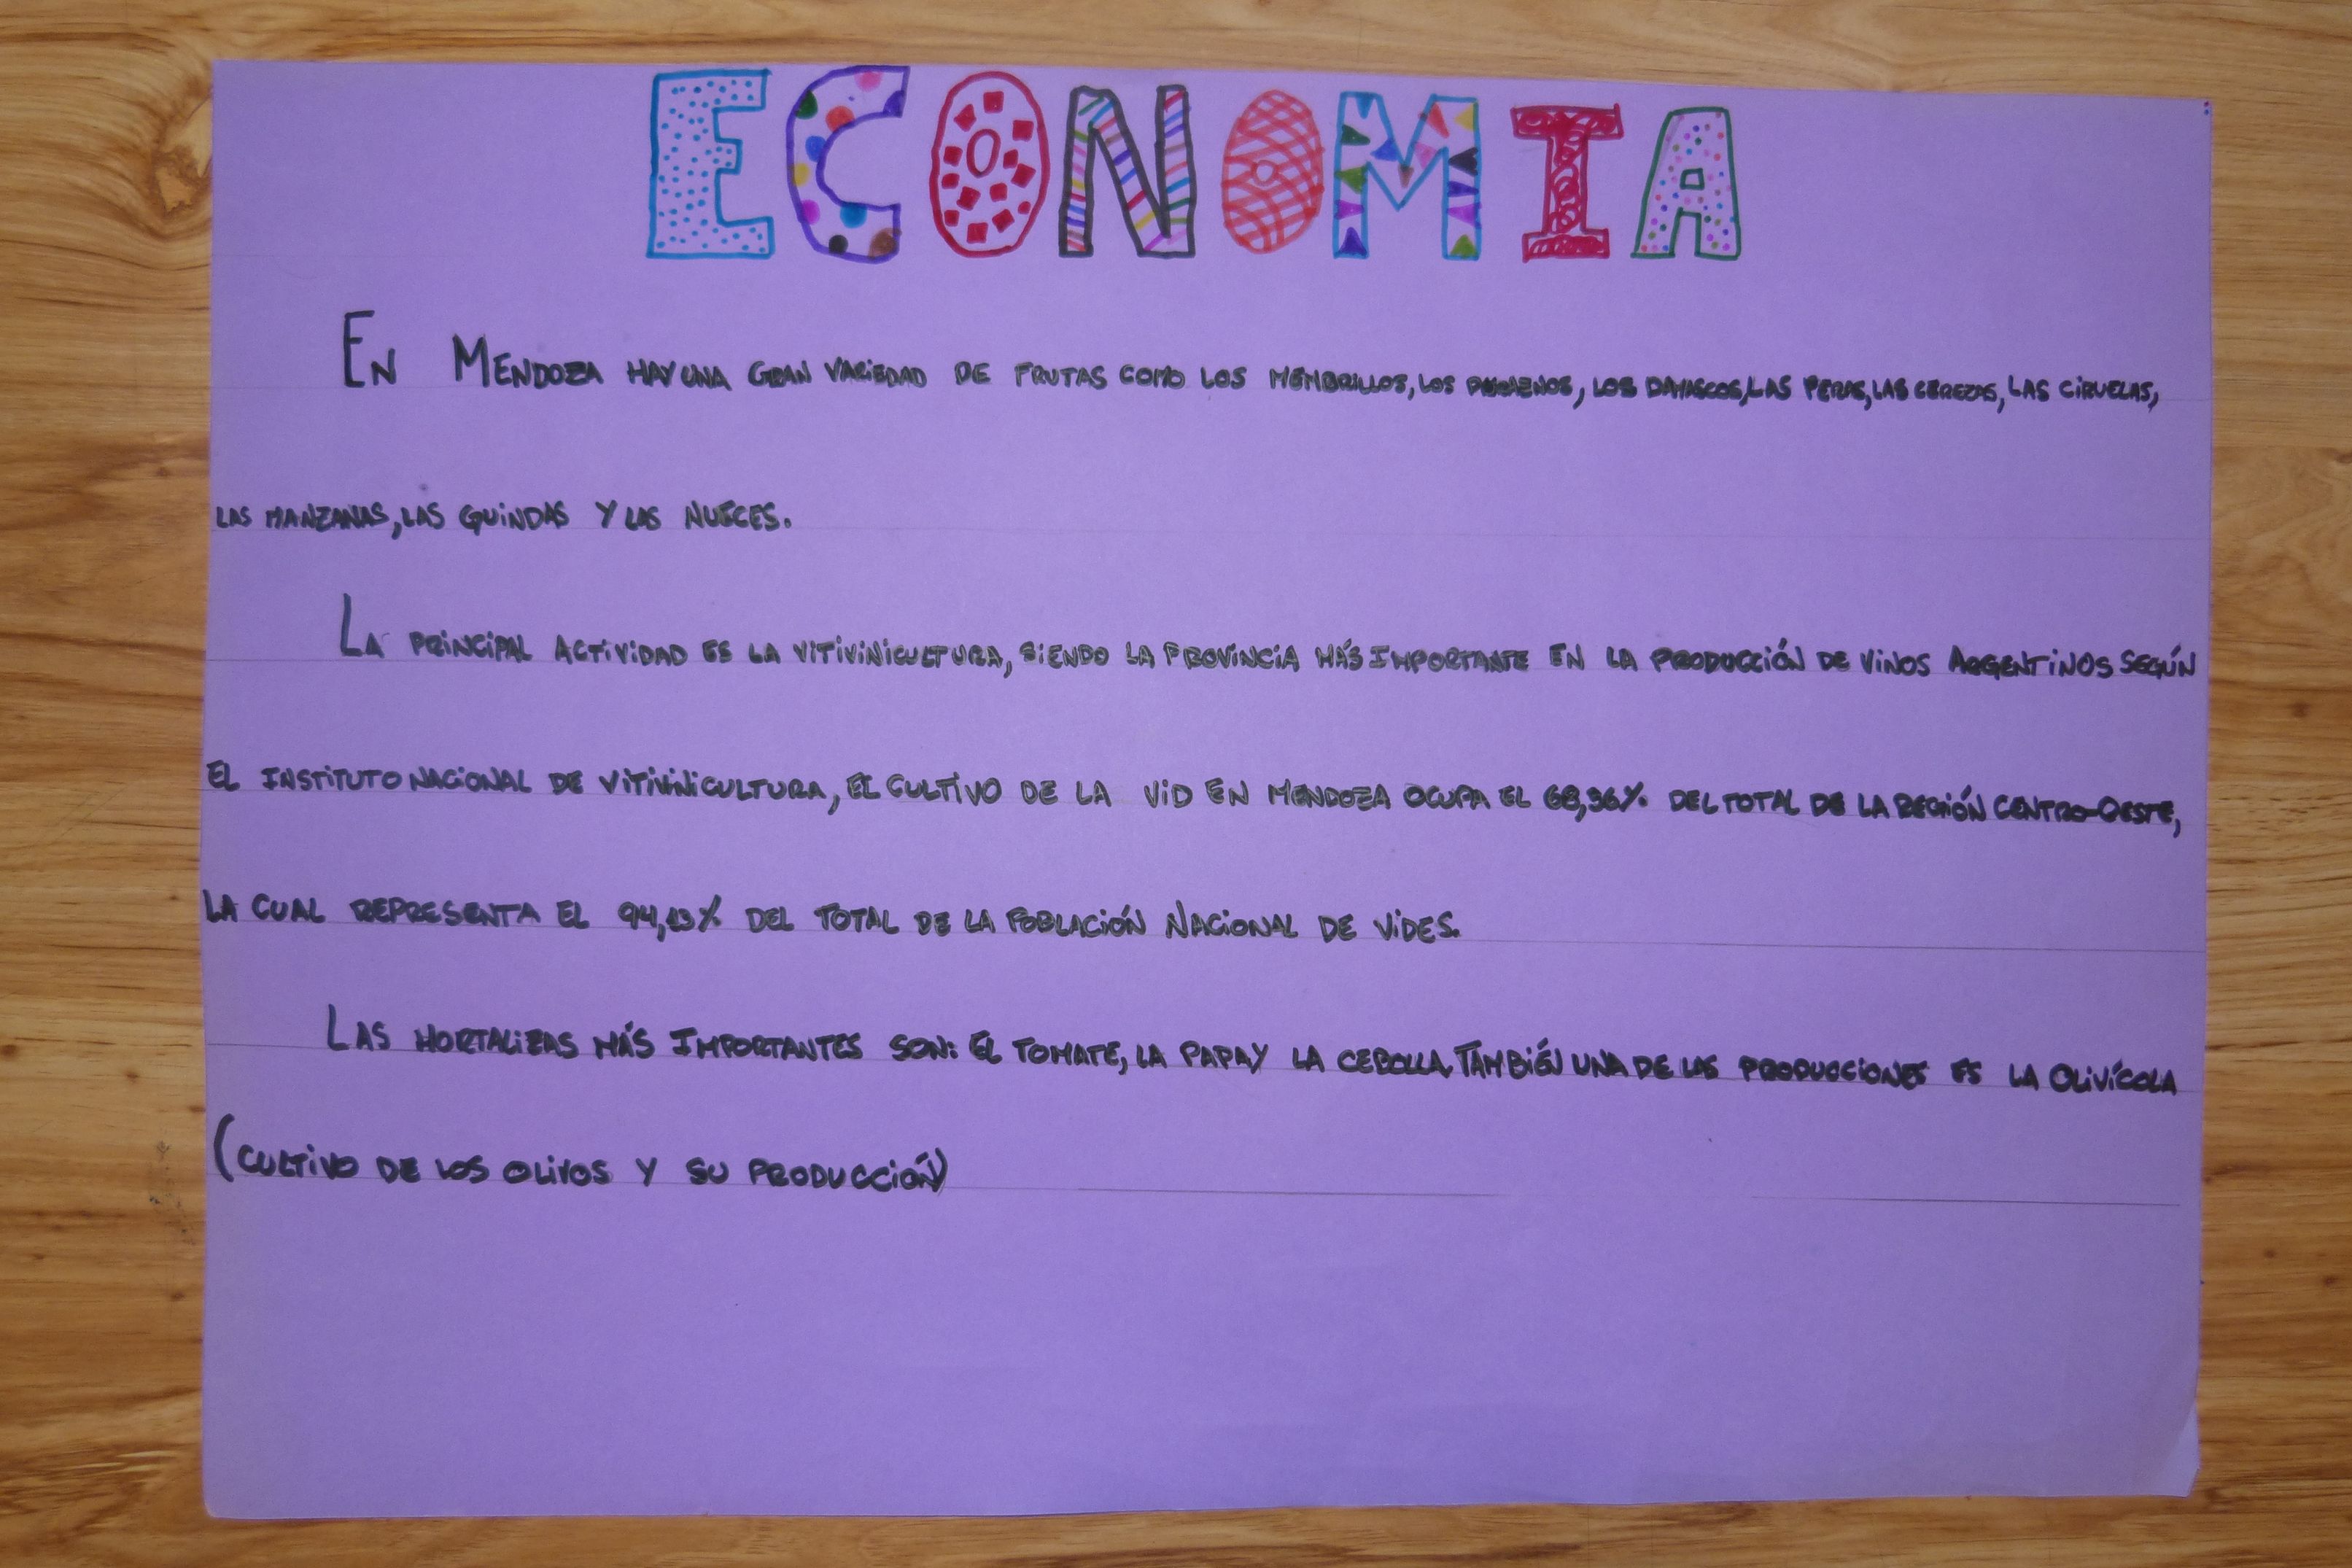 ECONOMIA
En Mendoza hay una gran variedad de frutas como los membrillos, los duraznos, los damascos, las peras, las cerezas, las ciruelas,
las manzanas, las guindas y las nueces.
La principal actividad es la vitivinicultura, siendo la provincia más importante en la producción de vinos argentinos según
el Instituto Nacional de Vitivinicultura, el cultivo de la vid en Mendoza ocupa el 68,36% del total de la región centro-oeste,
la cual representa el 94,13% del total de la población nacional de vides.
Las hortalizas más importantes son: el tomate, la papa y la cebolla. También una de las producciones es la olivícola
(cultivo de los olivos y su producción)